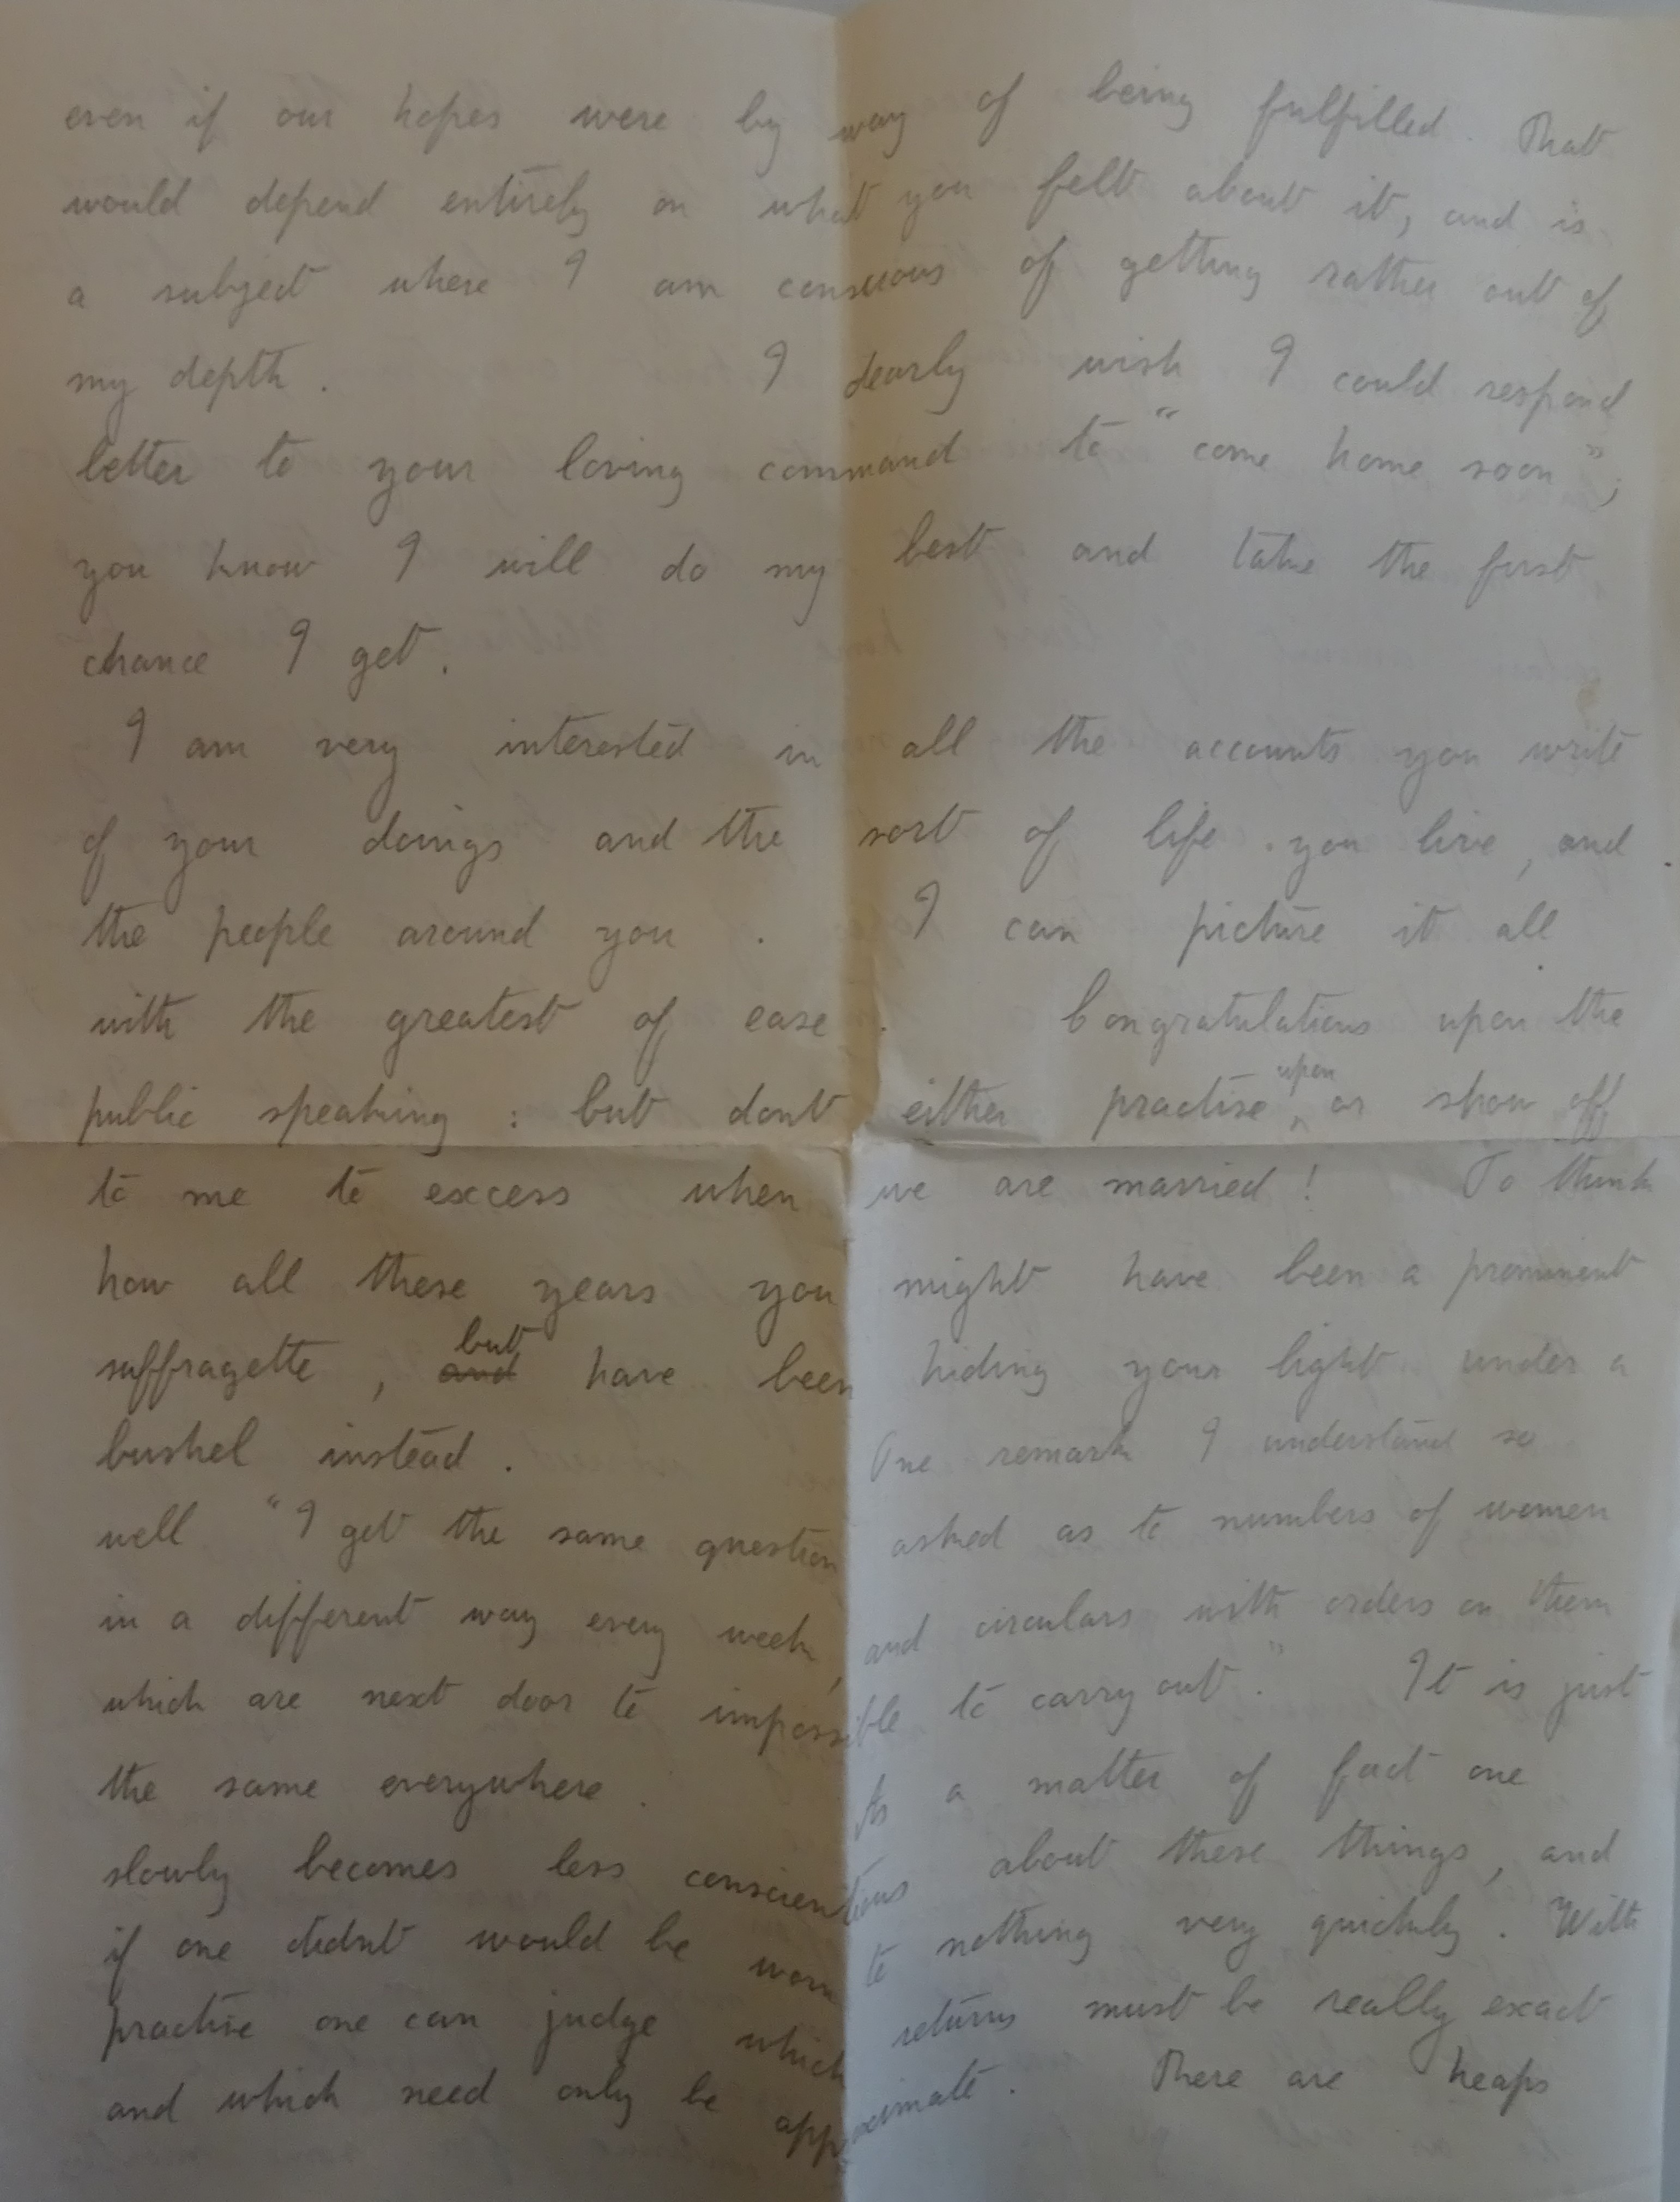 even if our hopes were by way of being fulfilled. That
would depend entirely on what you felt about it, and is
a subject where I am conscious of getting rather out of
my depth. I dearly wish I could respond
better to your loving command to "come home soon";
you know I will do my best and take the first
chance I get.
I am very interested in all the accounts you write
of your doings and the sort of life you live, and
the people around you. I can picture it all
with the greatest of ease. Congratulations upon the
public speaking: but dont either practise upon, or show off
to me to excess when we are married! To think
how all these years you might have been a prominent
suffragette, and but have been hiding your light under a
bushel instead. One remark I understand so
well "I get the same question asked as to numbers of women
in a different way every week, and circulars with orders on them
which are next door to impossible to carry out." It is just
the same everywhere. As a matter of fact one
slowly becomes less conscientious about these things, and
if one didnt would be worn to nothing very quickly. With
practise one can judge which returns must be really exact
and which need only be approximate. There are heaps